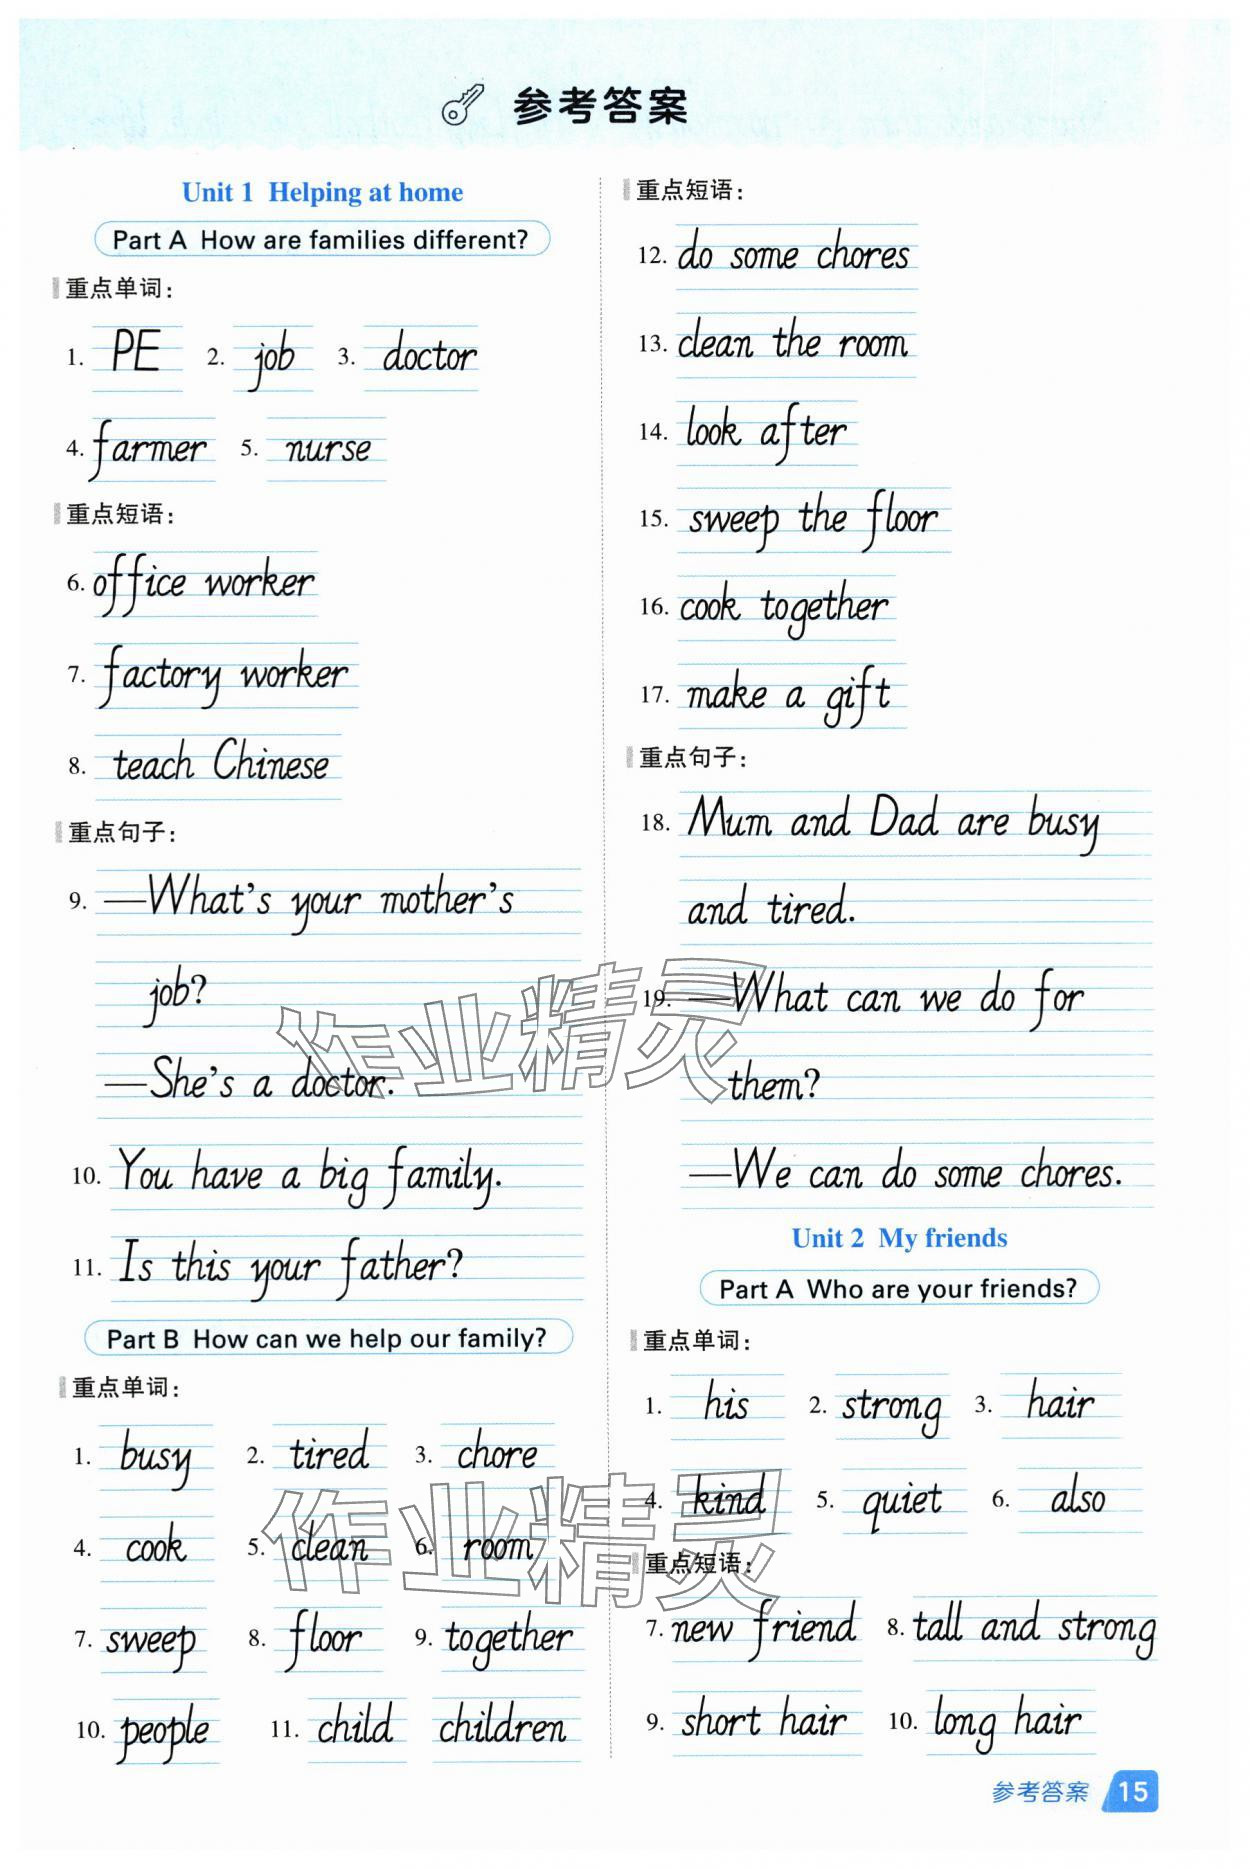 参考答案
Unit 1 Helping at home
Part A How are families different?
重点单词：
1. PE 2. job 3. doctor
4. farmer 5. nurse
重点短语：
6. office worker
7. factory worker
8. teach Chinese
重点句子：
9. —What's your mother's
job?
—She's a doctor.
10. You have a big family.
11. Is this your father?
Part B How can we help our family?
重点单词：
1. busy 2. tired 3. chore
4. cook 5. clean 6. room
7. sweep 8. floor 9. together
10. people 11. child children
重点短语：
12. do some chores
13. clean the room
14. look after
15. sweep the floor
16. cook together
17. make a gift
重点句子：
18. Mum and Dad are busy
and tired.
19. —What can we do for
them?
—We can do some chores.
Unit 2 My friends
Part A Who are your friends?
重点单词：
1. his 2. strong 3. hair
4. kind 5. quiet 6. also
重点短语：
7. new friend 8. tall and strong
9. short hair 10. long hair
参考答案 15
作业精灵
作业精灵